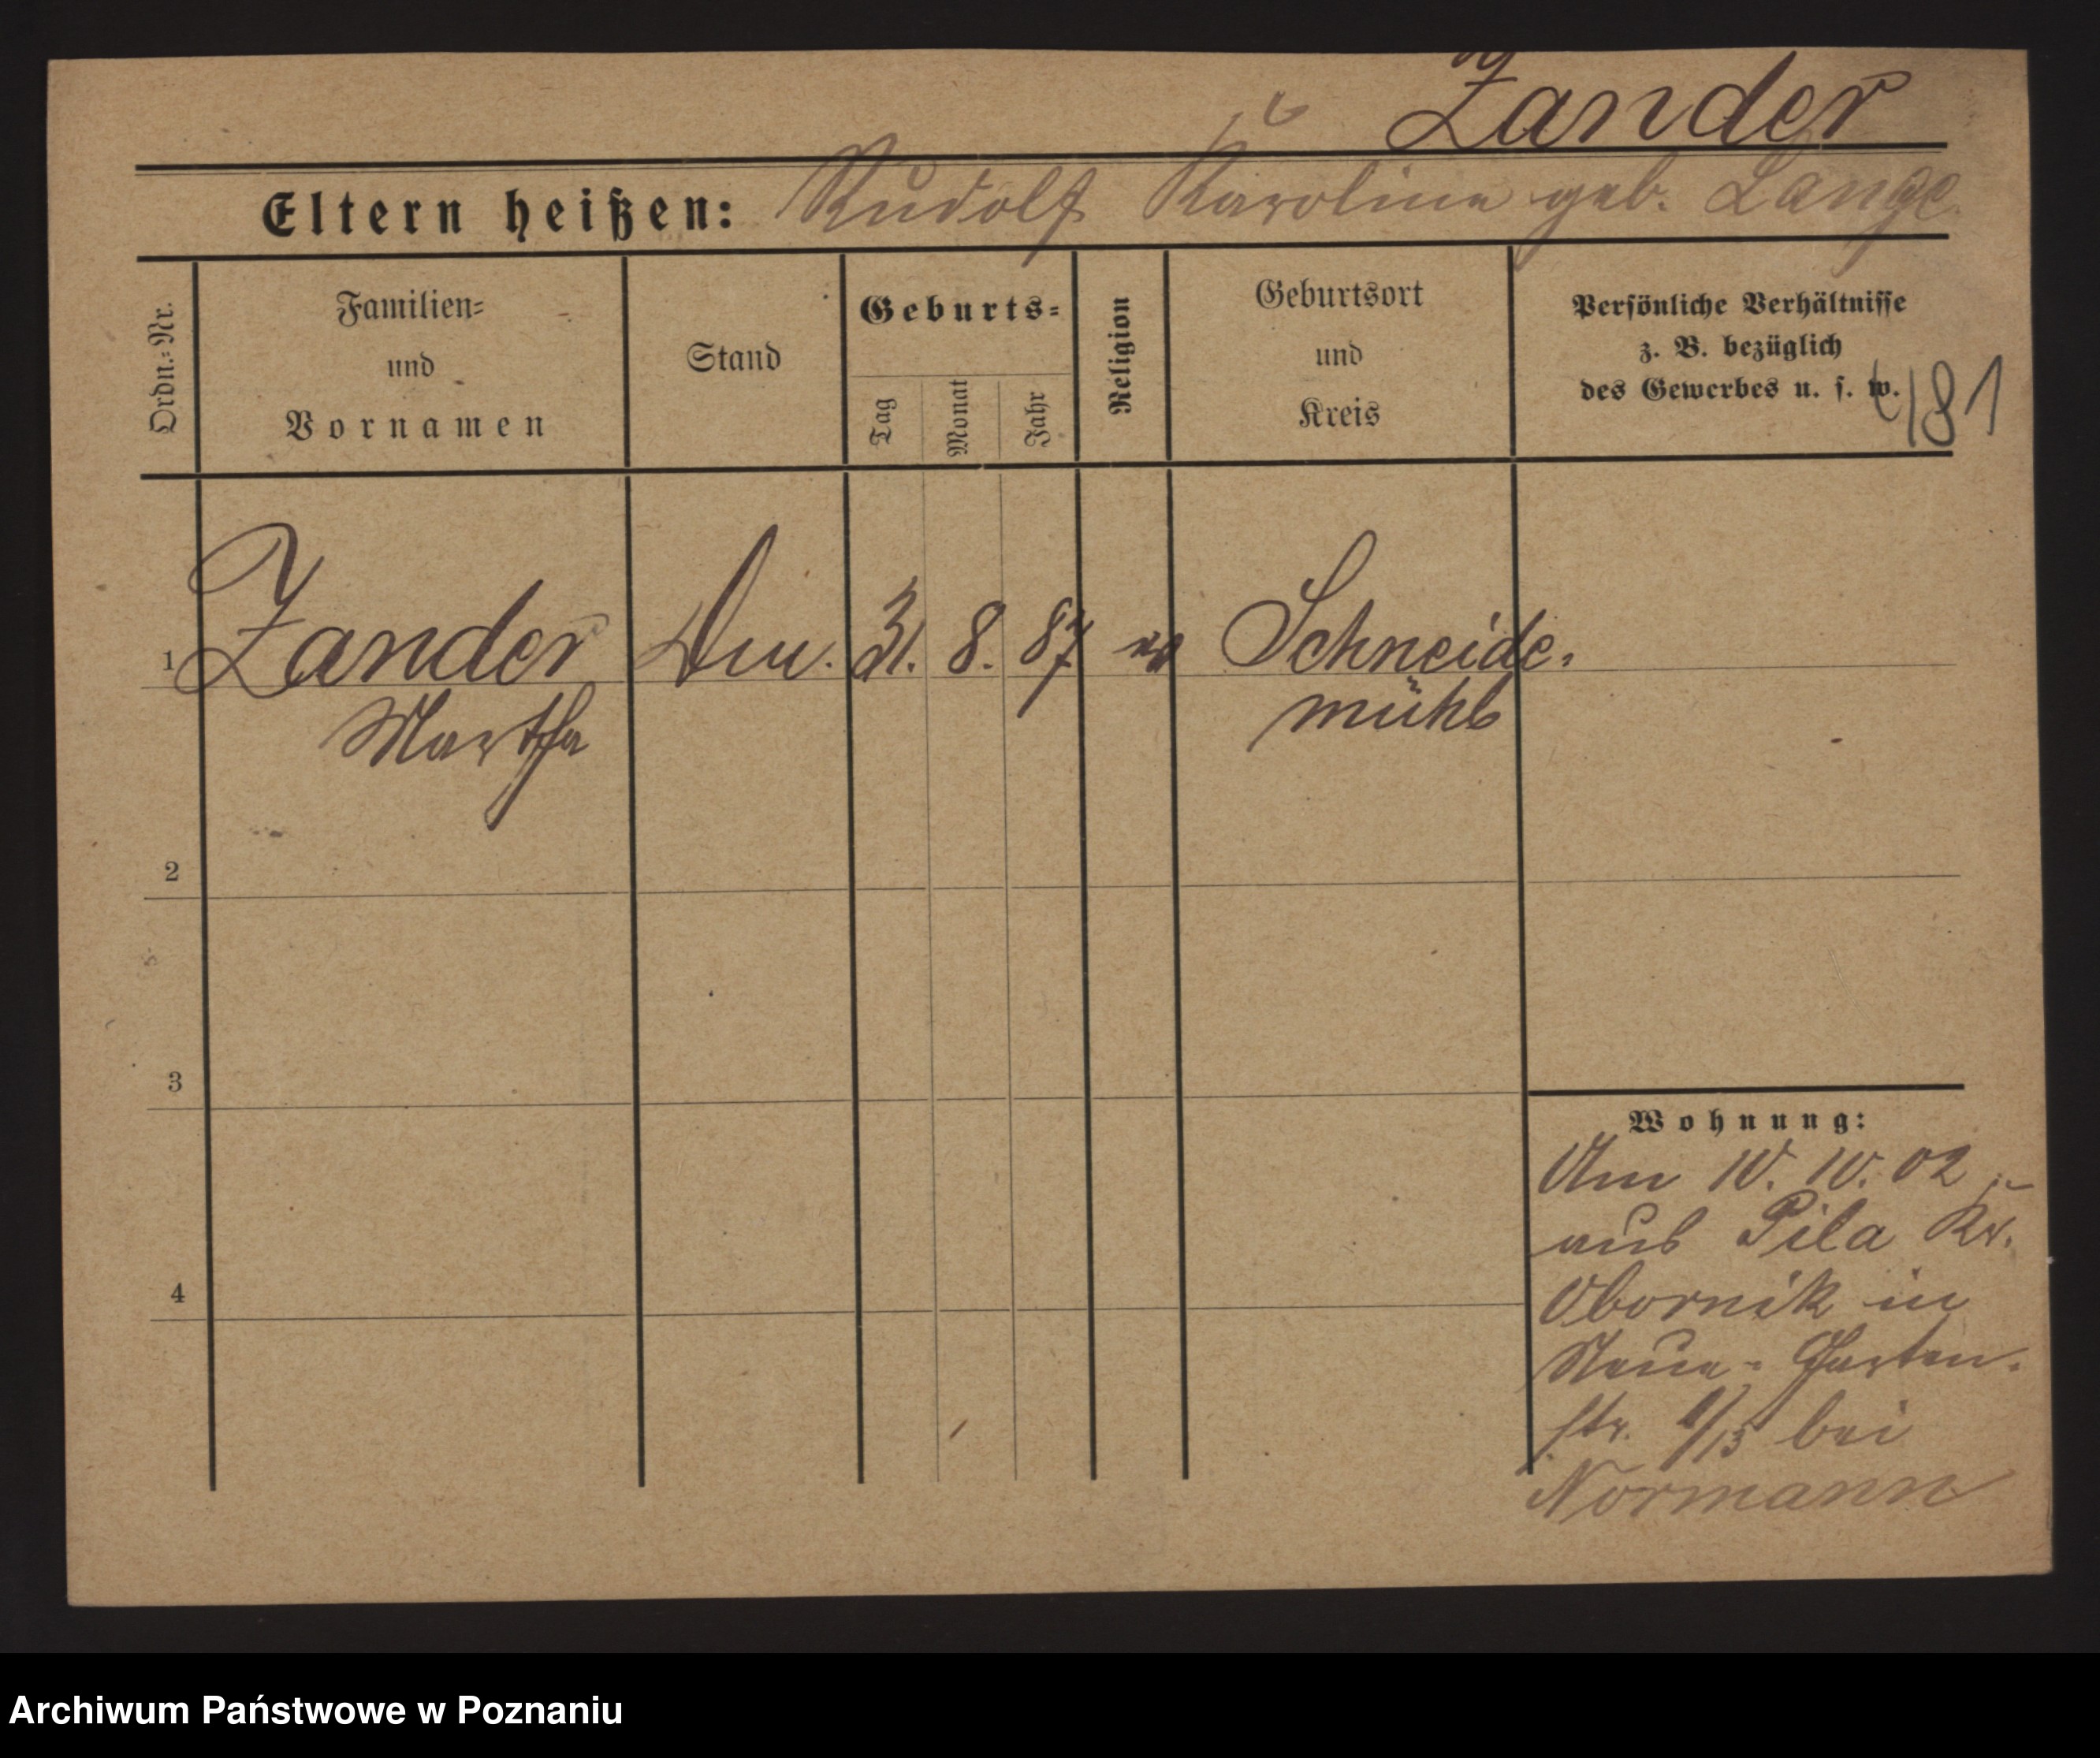 Zander
Eltern heißen: Rudolf Karoline geb. Lange
Ordn.-Nr.
Familien-
und
Vornamen
Stand
Geburts-
Tag
Monat
Jahr
Religion
Geburtsort
und
Kreis
Persönliche Verhältnisse
z. B. bezüglich
des Gewerbes u. s. w.
181
1 Zander 31. 8. 87 Schneide-
Martha mühl
2
3
4
Wohnung:
Am 10. 10. 02
aus Pila Kr.
Obornik in
Neue-Garten-
str. /13 bei
Normann
Archiwum Państwowe w Poznaniu